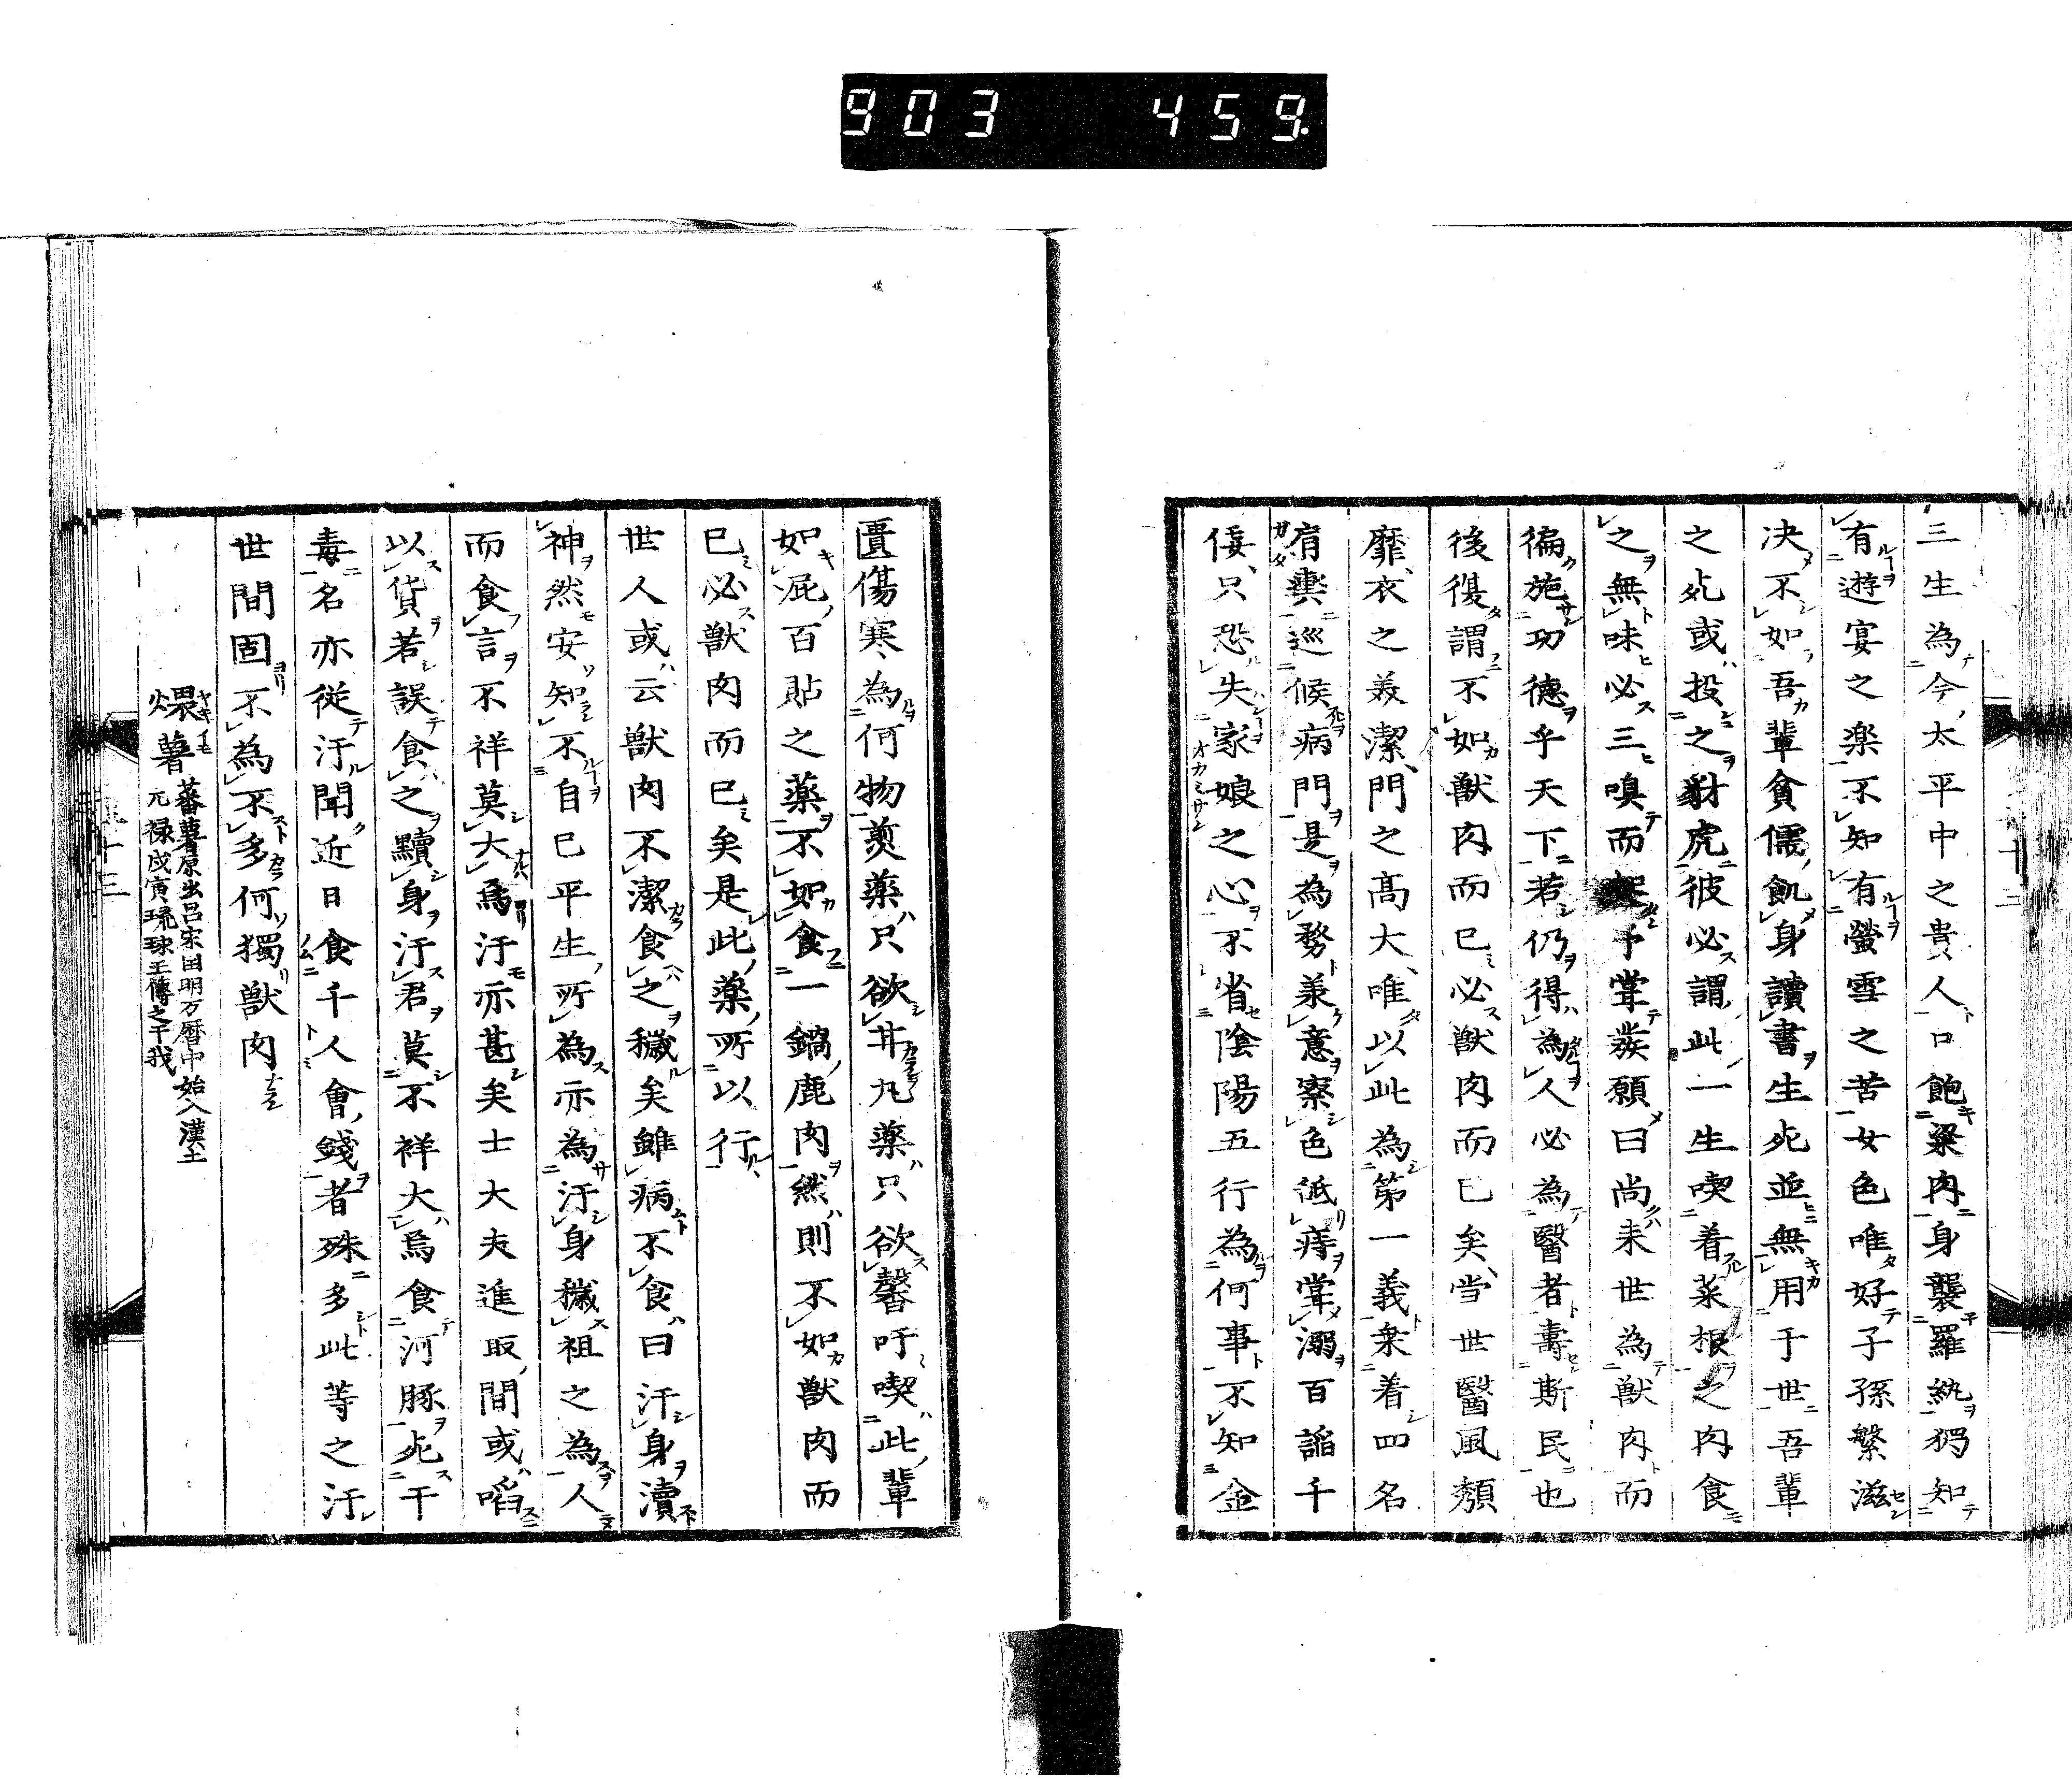 903 459
三生為今太平中之貴人口飽粱肉身襲羅紈独知
有遊宴之楽不知有螢雪之苦女色唯好子孫繁滋
決不如吾輩貧儒飢身讀書生死並無用于世吾輩
之死或投之豺虎彼必謂此一生喫着菜根之肉食
之無味必三嗅而起予甞發願曰尚来世為獣肉而
徧施功德乎天下若仍得為人必為醫者壽斯民也
後復謂不如獣肉而已必獣肉而已矣当世醫風頽
靡衣之美潔門之高大唯以此為第一義衆着四名
肩輿巡候病門是為務兼意察色舐痔甞溺百謟千
佞只恐失家娘之心不省陰陽五行為何事不知金
匱傷寒為何物煎薬只欲丼丸薬只欲馨吁喫此輩
如屁百貼之薬不如食一鍋鹿肉然則不如獣肉而
已必獣肉而已矣是此薬所以行
世人或云獣肉不潔食之穢矣雖病不食曰汗身瀆
神然安知不自已平生所為亦為汙身穢祖之為人
而食言不祥莫大焉汙亦甚矣士大夫進取間或啗
以貨若誤食之黷身汙君莫不祥大焉食河豚死干
毒名亦従汙聞近日食千人會錢者殊多此等之汙
世間固不為不多何獨獣肉
煨薯 蕃薯原出呂宋国明万暦中始入漢土
元禄戊寅琉球王傳之干我